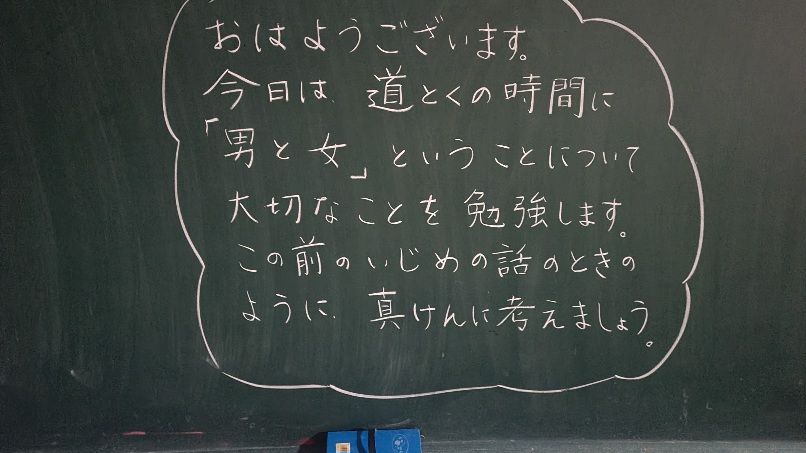 おはようございます。
今日は、道とくの時間に
「男と女」ということについて
大切なことを勉強します。
この前のいじめの話のときの
ように、真けんに考えましょう。